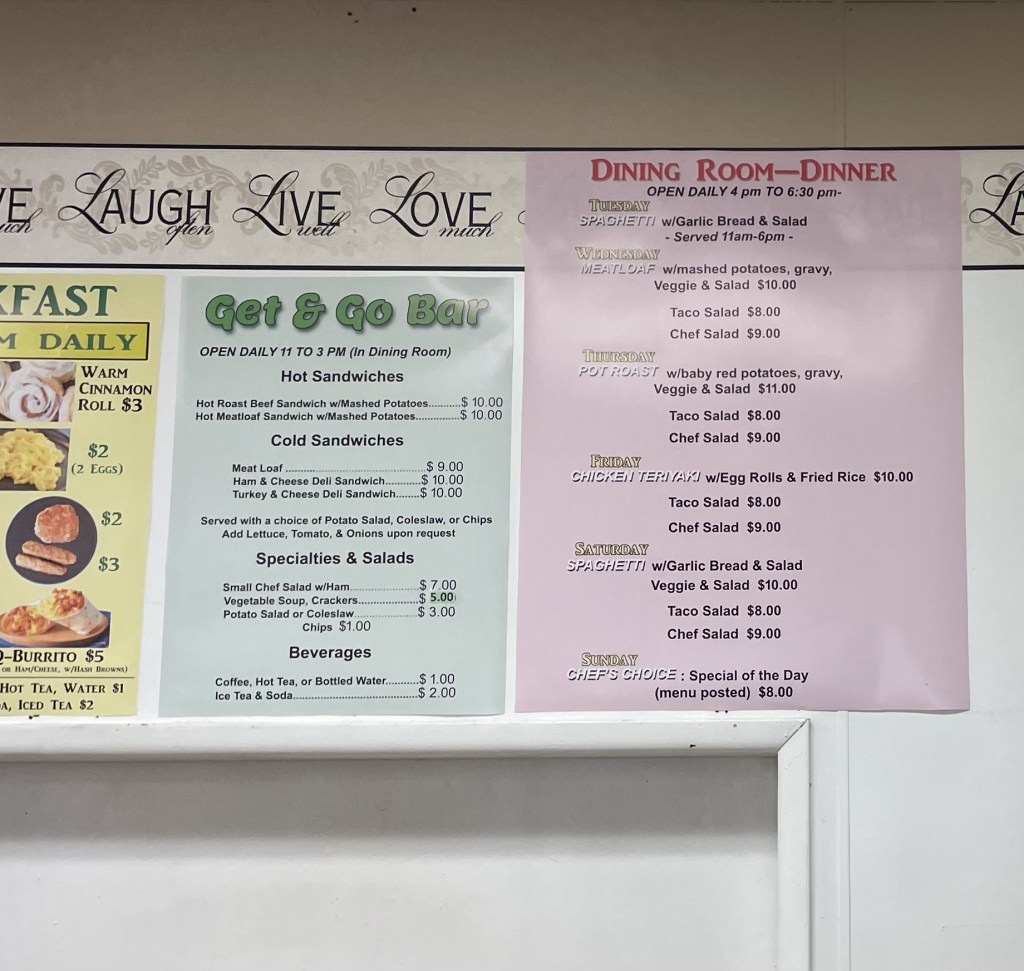 LAUGH often LIVE well LOVE much
KFAST
M DAILY
WARM
CINNAMON
ROLL $3
$2
(2 EGGS)
$2
$3
-BURRITO $5
OR HAM/CHEESE, W/HASH BROWNS)
HOT TEA, WATER $1
A, ICED TEA $2
Get & Go Bar
OPEN DAILY 11 TO 3 PM (In Dining Room)
Hot Sandwiches
Hot Roast Beef Sandwich w/Mashed Potatoes..........$ 10.00
Hot Meatloaf Sandwich w/Mashed Potatoes..............$ 10.00
Cold Sandwiches
Meat Loaf ............................................$ 9.00
Ham & Cheese Deli Sandwich...........$ 10.00
Turkey & Cheese Deli Sandwich.......$ 10.00
Served with a choice of Potato Salad, Coleslaw, or Chips
Add Lettuce, Tomato, & Onions upon request
Specialties & Salads
Small Chef Salad w/Ham......................$ 7.00
Vegetable Soup, Crackers...................$ 5.00
Potato Salad or Coleslaw....................$ 3.00
Chips $1.00
Beverages
Coffee, Hot Tea, or Bottled Water..........$ 1.00
Ice Tea & Soda.......................................$ 2.00
DINING ROOM—DINNER
OPEN DAILY 4 pm TO 6:30 pm-
TUESDAY
SPAGHETTI w/Garlic Bread & Salad
- Served 11am-6pm -
WEDNESDAY
MEATLOAF w/mashed potatoes, gravy,
Veggie & Salad $10.00
Taco Salad $8.00
Chef Salad $9.00
THURSDAY
POT ROAST w/baby red potatoes, gravy,
Veggie & Salad $11.00
Taco Salad $8.00
Chef Salad $9.00
FRIDAY
CHICKEN TERIYAKI w/Egg Rolls & Fried Rice $10.00
Taco Salad $8.00
Chef Salad $9.00
SATURDAY
SPAGHETTI w/Garlic Bread & Salad
Veggie & Salad $10.00
Taco Salad $8.00
Chef Salad $9.00
SUNDAY
CHEF'S CHOICE : Special of the Day
(menu posted) $8.00